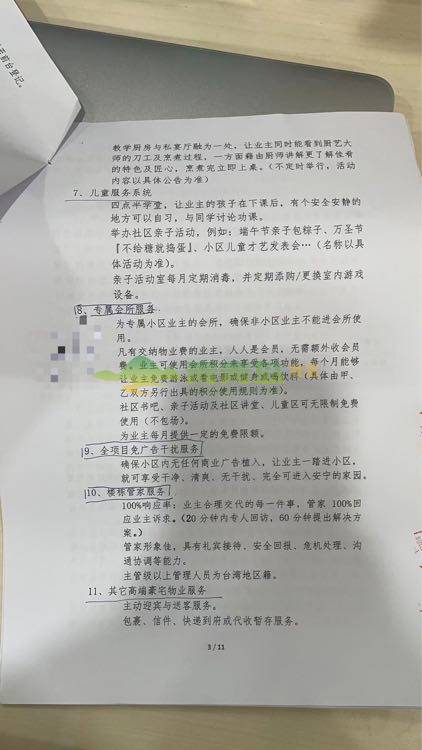 去前台登记。
教学厨房与私宴厅融为一处，让业主同时能看到厨艺大
师的刀工及烹煮过程，一方面藉由厨师讲解更了解佳肴
的特色及匠心，烹煮完立即上桌。（不定时举行，活动
内容以具体公告为准）
7、儿童服务系统
四点半学堂，让业主的孩子在下课后，有个安全安静的
地方可以自习，与同学讨论功课。
举办社区亲子活动，例如：端午节亲子包粽子、万圣节
『不给糖就捣蛋』、小区儿童才艺发表会…（名称以具
体活动为准）。
亲子活动室每月定期消毒，并定期添购/更换室内游戏
设备。
8、专属会所服务
为专属小区业主的会所，确保非小区业主不能进会所使
用。
凡有交纳物业费的业主，人人是会员，无需额外收会员
费。业主可使用会所积分来享受各项功能，每个月能够
让业主免费游泳或看电影或健身或喝饮料（具体由甲、
乙双方另行出具的积分使用规则为准）。
社区书吧、亲子活动及社区讲堂、儿童区可无限制免费
使用（不包场）。
为业主每月提供一定的免费额。
9、全项目免广告干扰服务
确保小区内无任何商业广告植入，让业主一踏进小区，
就可享受干净、清爽、无干扰、完全可进入安宁的家园。
10、楼栋管家服务
100%响应率：业主合理交代的每一件事，管家 100%回
应业主诉求。（20 分钟内专人回访，60 分钟提出解决方
案。）
管家形象佳，具有礼宾接待、安全回报、危机处理、沟
通协调等能力。
主管级以上管理人员为台湾地区籍。
11、其它高端豪宅物业服务
主动迎宾与送客服务。
包裹、信件、快递到府或代收暂存服务。
3 / 11